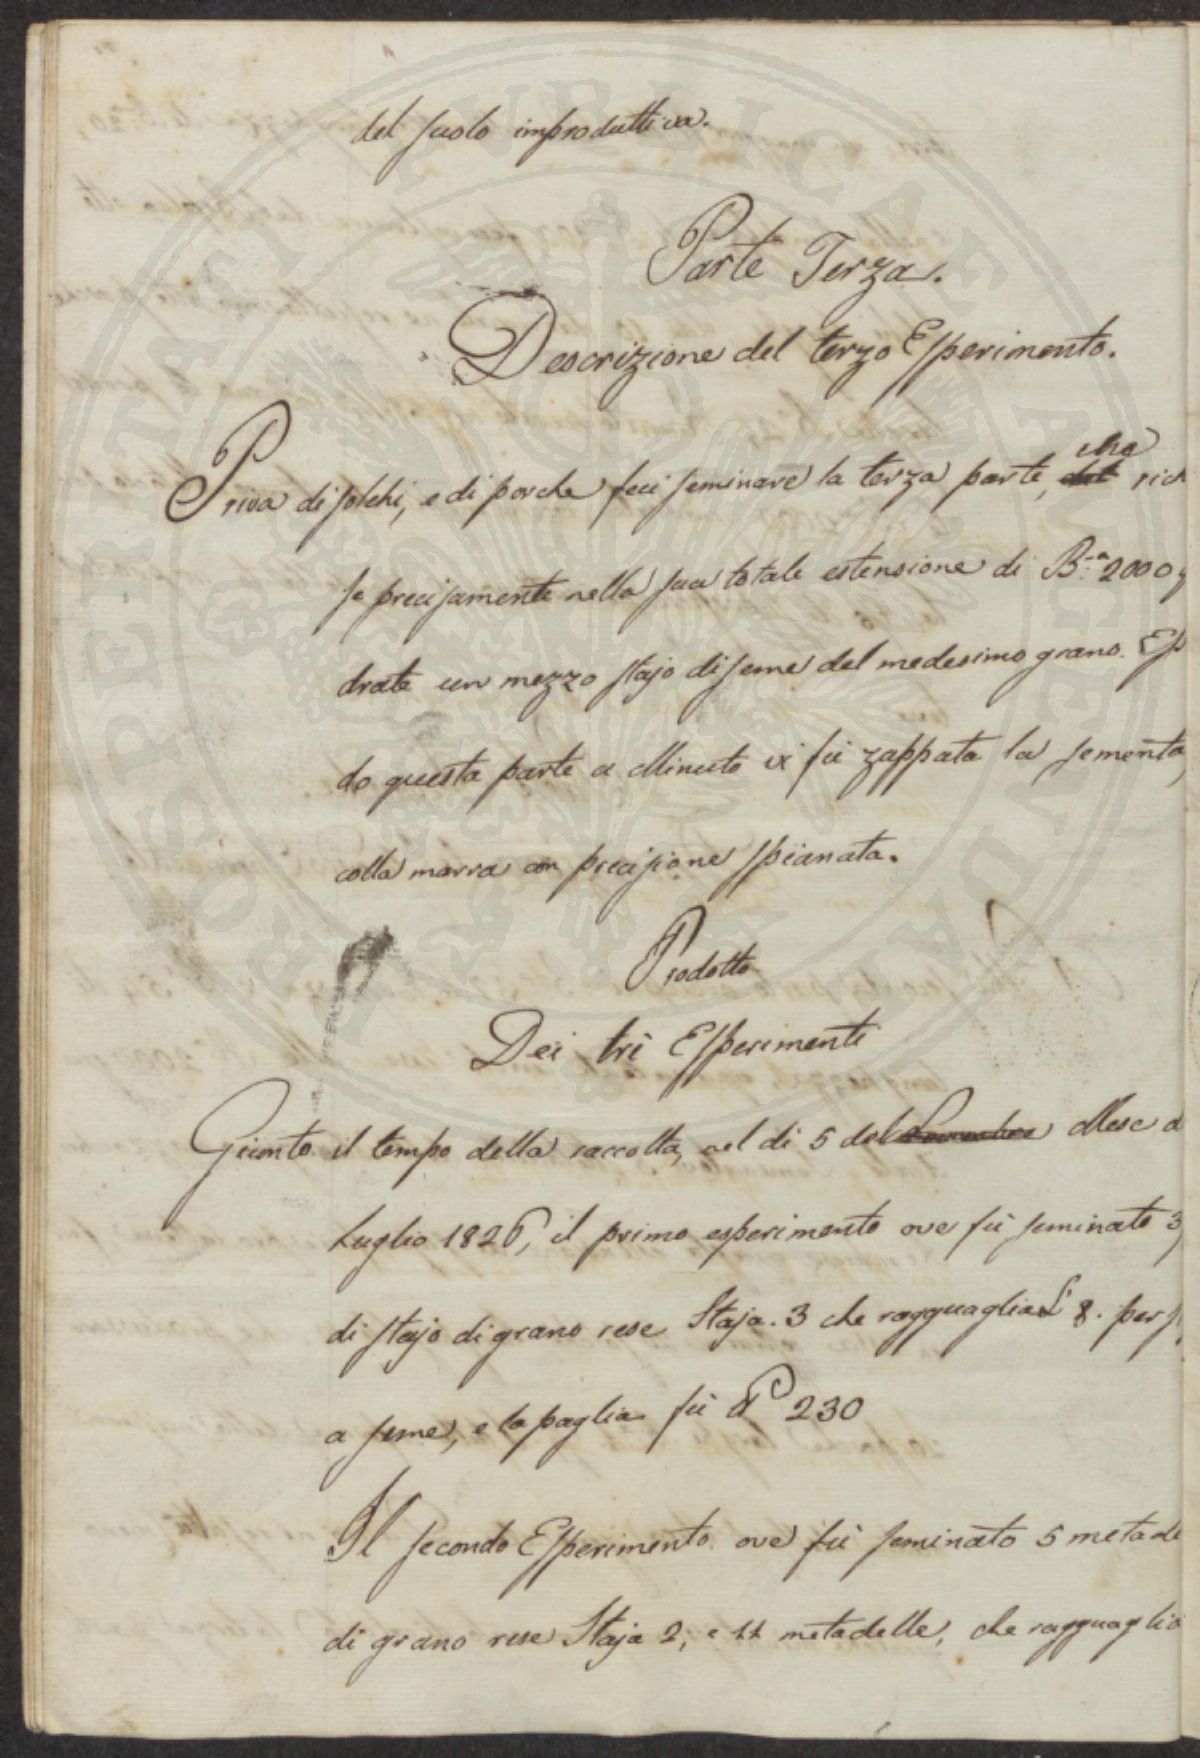 del suolo improduttiva.
Parte Terza.
Descrizione del terzo Esperimento.
Priva di solchi, e di porche feci seminare la terza parte, che rich
se precisamente nella sua totale estensione di B.a 2000 q
drate un mezzo stajo di seme del medesimo grano. Esp
do questa parte a Minuto vi fù zappata la sementa,
colla marra con precisione spianata.
Prodotto
Dei tri Esperimenti
Giunto il tempo della raccolta, nel di 5 del Mese d
Luglio 1826, il primo esperimento ove fù seminato 3/
di stajo di grano rese Staja. 3 che ragguaglia L' 8. per s
a seme, e la paglia fù 230
Il secondo Esperimento ove fù seminato 5 metade
di grano rese Staja 2, e 11 metadelle, che ragguaglia
ARCHI PUBLICAE AUGENDAE PROSPERITATI